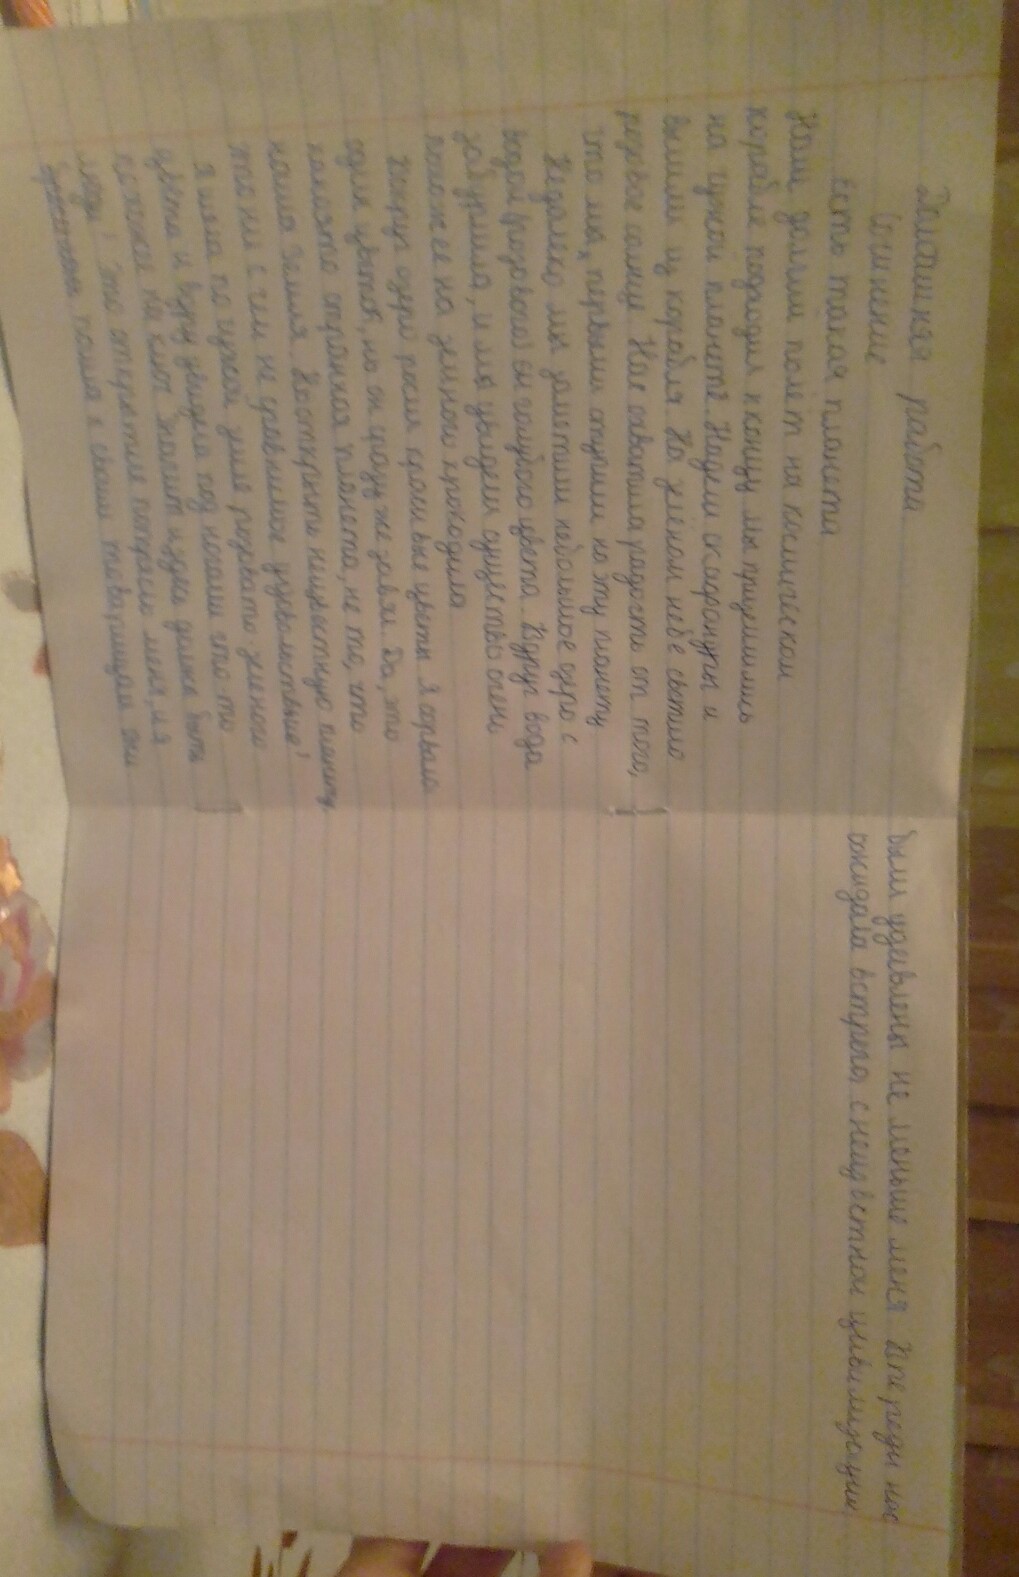 Домашняя работа
Сочинение
Есть такая планета
Наш долгий полёт на космическом
корабле подходил к концу. Мы приземлились
на чужой планете. Надели скафандры и
вышли из корабля. На зелёном небе светило
розовое солнце. Нас охватила радость от того,
что мы первыми ступили на эту планету
Недалеко мы заметили небольшое озеро с
водой розового и голубого цвета. Вдруг вода
забурлила, и мы увидели существо очень
похожее на земного крокодила
Вокруг озера росли красивые цветы. Я сорвала
один цветок, но он сразу же завял. Да, это
какая-то странная планета, не то, что
наша Земля. Но открыть неизвестную планету,
это ни с чем не сравнимое удовольствие!
Я шла по чужой земле розовато-зелёного
цвета и вдруг увидела под ногами что-то
похожее на ключ. Значит и здесь должны быть
люди! Это открытие потрясло меня, и я
пошла к своим товарищам они
были удивлены не меньше меня Впереди нас
ожидала встреча с неизвестной цивилизацией.